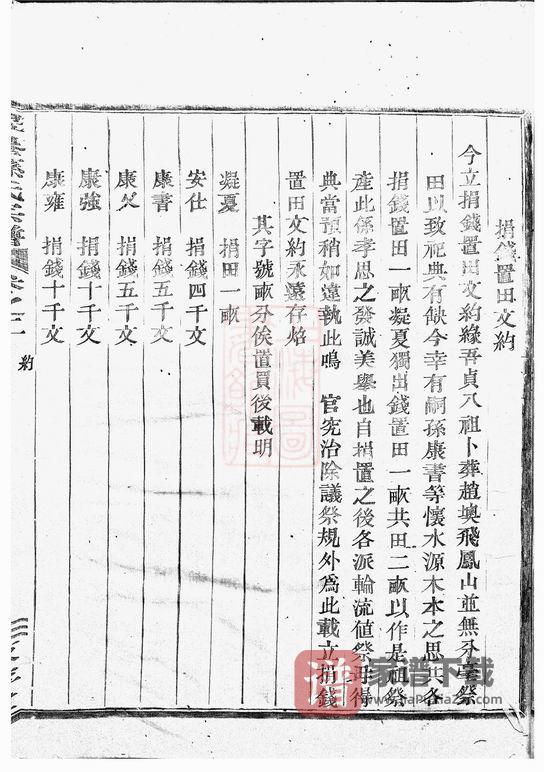 捐錢置田文約
今立捐錢置田文約緣吾貞八祖卜葬趙墺飛鳳山並無分毫祭
田以致祀典有缺今幸有嗣孫康書等懷水源木本之思共各
捐錢置田一畝凝夏獨出錢置田一畝共田二畝以作是祖祭
產此係孝思之發誠美舉也自捐置之後各派輪流值祭毋得
典當預稍如違執此鳴 官究治除議祭規外為此載立捐錢
置田文約永遠存焰
其字號畝分俟置買後載明
凝夏 捐田一畝
安仕 捐錢四千文
康書 捐錢五千文
康 捐錢五千文
康強 捐錢十千文
康雍 捐錢十千文
氏宗譜
約
譜
家谱下载